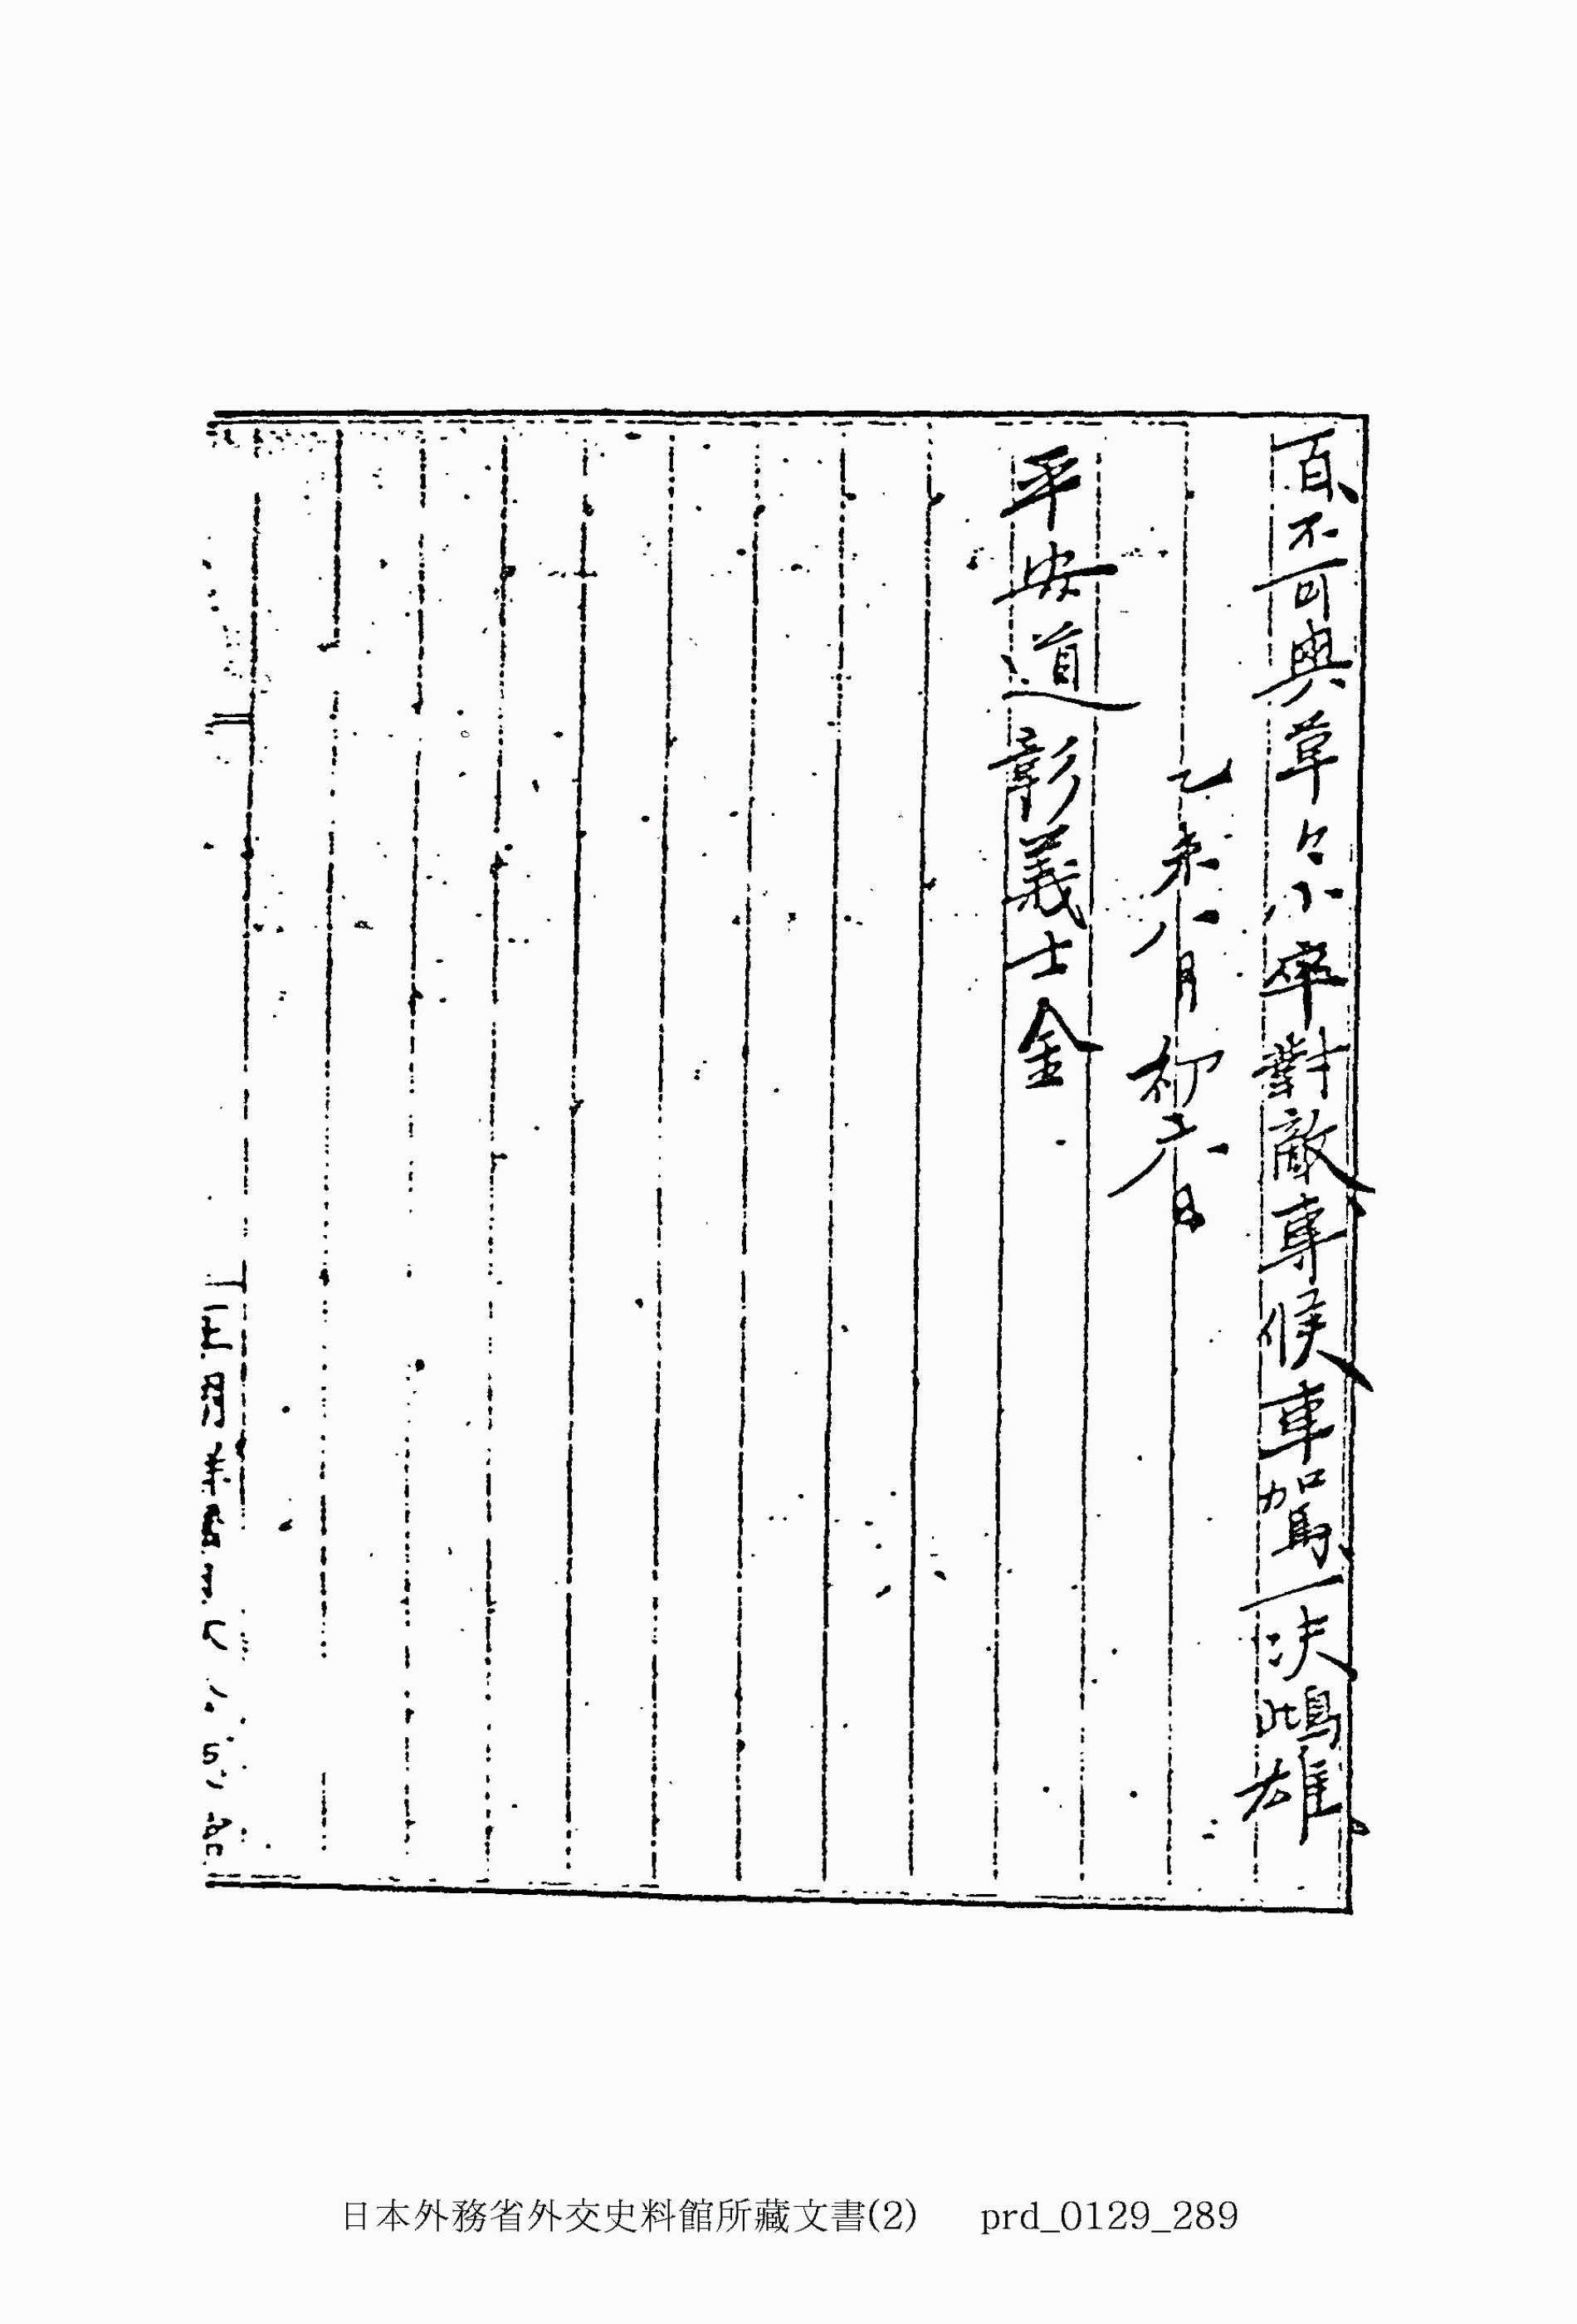 不可與草々小卒對敵專候車駕一决雌雄
乙未八月初六日
平安道彰義士金
日本外務省外交史料館所藏文書(2) prd_0129_289